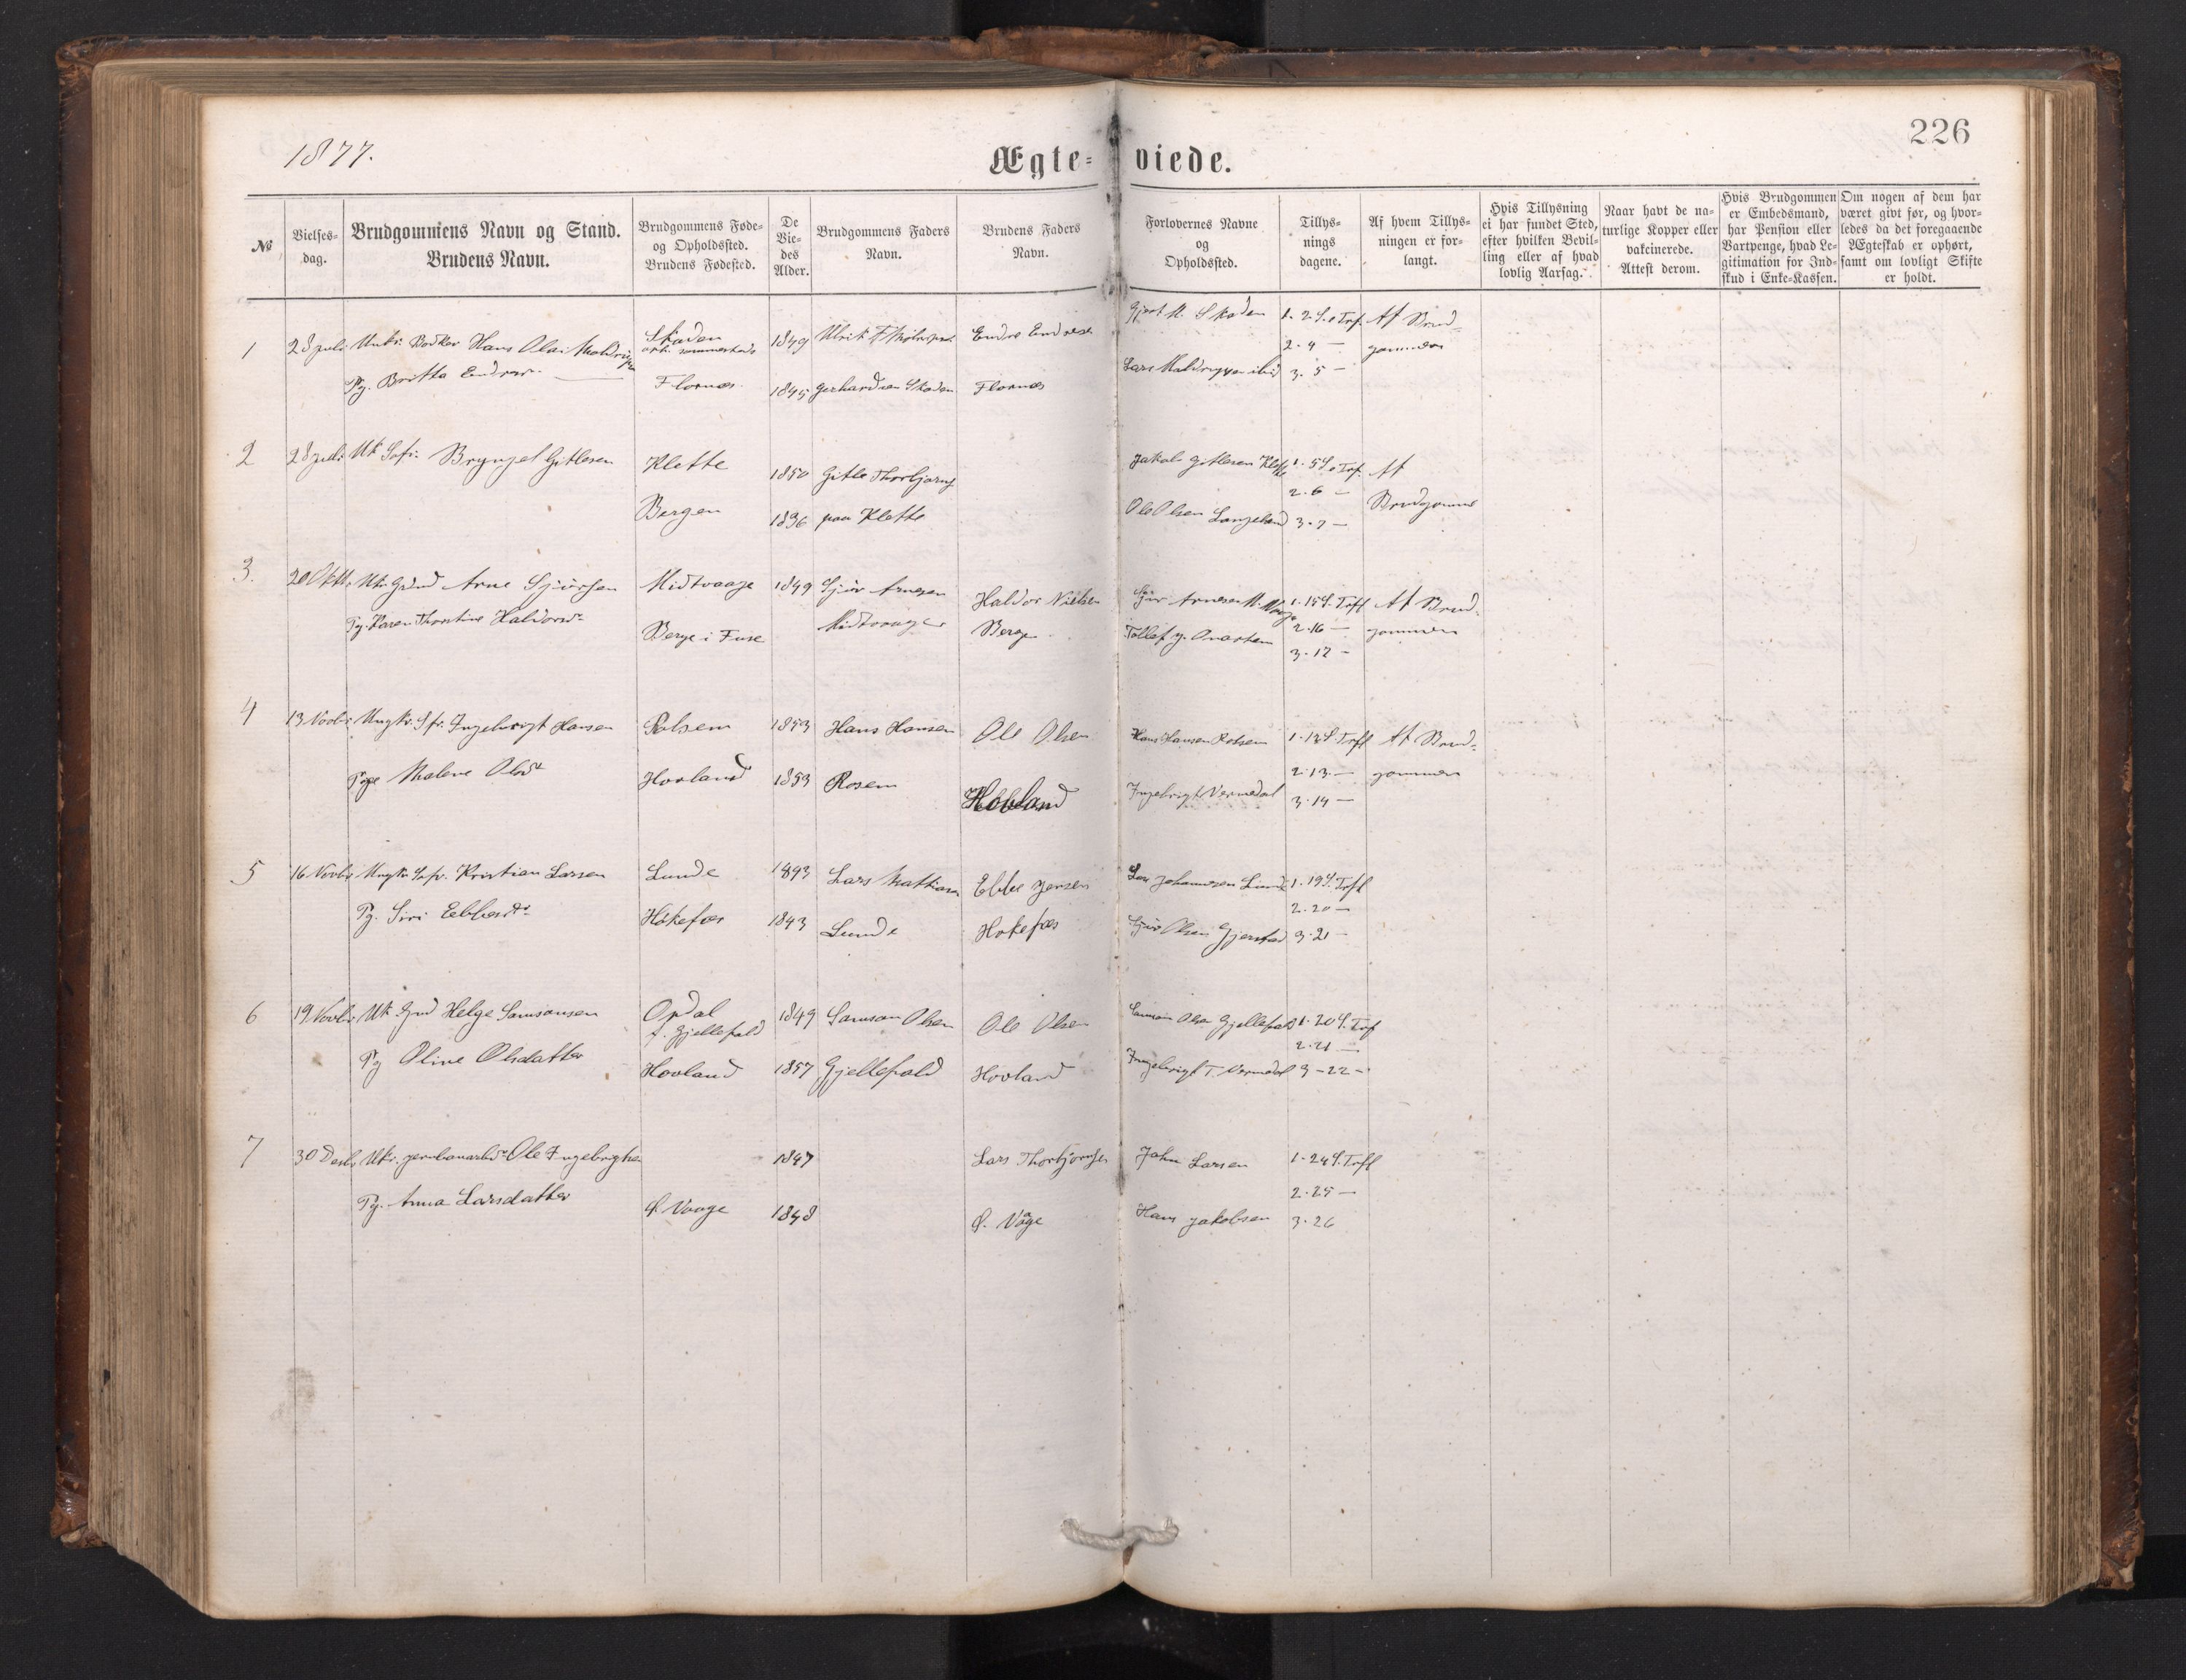 1877.
Ægte-
viede.
226
№
Vielses-
dag.
Brudgommens Navn og Stand.
Brudens Navn.
Brudgommens Føde-
og Opholdssted.
Brudens Fødested.
De
Vie-
des
Alder.
Brudgommens Faders
Navn.
Brudens Faders
Navn.
Forlovernes Navne
og
Opholdssted.
Tillys-
nings
dagene.
Af hvem Tillys-
ningen er for-
langt.
Hvis Tillysning
ei har fundet Sted,
efter hvilken Bevil-
ling eller af hvad
lovlig Aarsag.
Naar havt de na-
turlige Kopper eller
vakcinerede.
Attest derom.
Hvis Brudgommen
er Embedsmand,
har Pension eller
Vartpenge, hvad Le-
gitimation for Ind-
skud i Enke-Kassen.
Om nogen af dem har
været givt før, og hvor-
ledes da det foregaaende
Ægteskab er ophørt,
samt om lovligt Skifte
er holdt.
1
28 Juli
Unkr. Bødker Hans Olai
Pg. Britta Endresd.
Skaden
Flornæs
1849
1845
Ulrik
Gerhardsen Skaden
Endre Endresen
Flornæs
Gjert U. Skaden
Lars Maldrup ibid
1. 2 S. e Trf.
2. 4 —
3. 5 —
Af Brud-
gommen
2
28 Juli
Uk Safr. Brynjel Gitlesen
Klette
Bergen
1850
1836
Gitle Thorbjørns.
paa Klette
Jakob Gitlesen Klette
Ole Olsen Langeland
1. 5 S. e Trf.
2. 6 —
3. 7 —
Af
Brudgommen
3.
20 Oktb.
Uk. Gmd Arne Sjursen
Pg. Karen Thorstine Haldorsd.
Midtvaage
Berge i Fuse
1849
Sjur Arnesen
Midtvaage
Haldor Nielsen
Berge
Sjur Arnesen M. Vaage
Tollef J. Ovartun
1. 15 S. Trft
2. 16 —
3. 17 —
Af Brud-
gommen
4
13 Novbr
Ungkr. Sfr. Ingebrigt Hansen
Pige Malene Olsd
Rolsem
Hovland
1853
1853
Hans Hansen
Rosem
Ole Olsen
Hovland
Hans Hansen Rolsem
Ingebrigt Vermedal
1. 12 S. Trft
2. 13 —
3. 14 —
Af Brud-
gommen
5
16 Novbr
Ungkr Safr. Kristian Larsen
Pg. Siri Ebbesdr
Lunde
Hökefos
1893
1843
Lars Mathiesen
Lunde
Ebbe Jensen
Hökefos
Lars Johannesen Lunde
Sjur Olsen Gjerstad
1. 19 S. Trft
2. 20 —
3. 21 —
6
19 Novbr
Uk. Gmd Helge Samsonsen
Pg Oline Olsdatter
Opdal
f. Gjellefald
Hovland
1849
1857
Samson Olsen
Gjellefald
Ole Olsen
Hovland
Samson Olsen Gjellefald
Ingebrigt T. Vermedal
1. 20 S. Trf
2. 21 —
3 - 22 -
7
30 Decb.
Ukr. jernbanearbdr Ole Ingebrigtsen
Pg. Anna Larsdatter
Ø. Vaage
1847
1848
Lars Thorbjørnsen
Ø. Våge
John Larsen
Hans Jakobsen
1. 24 S. Trft
2. 25 —
3. 26